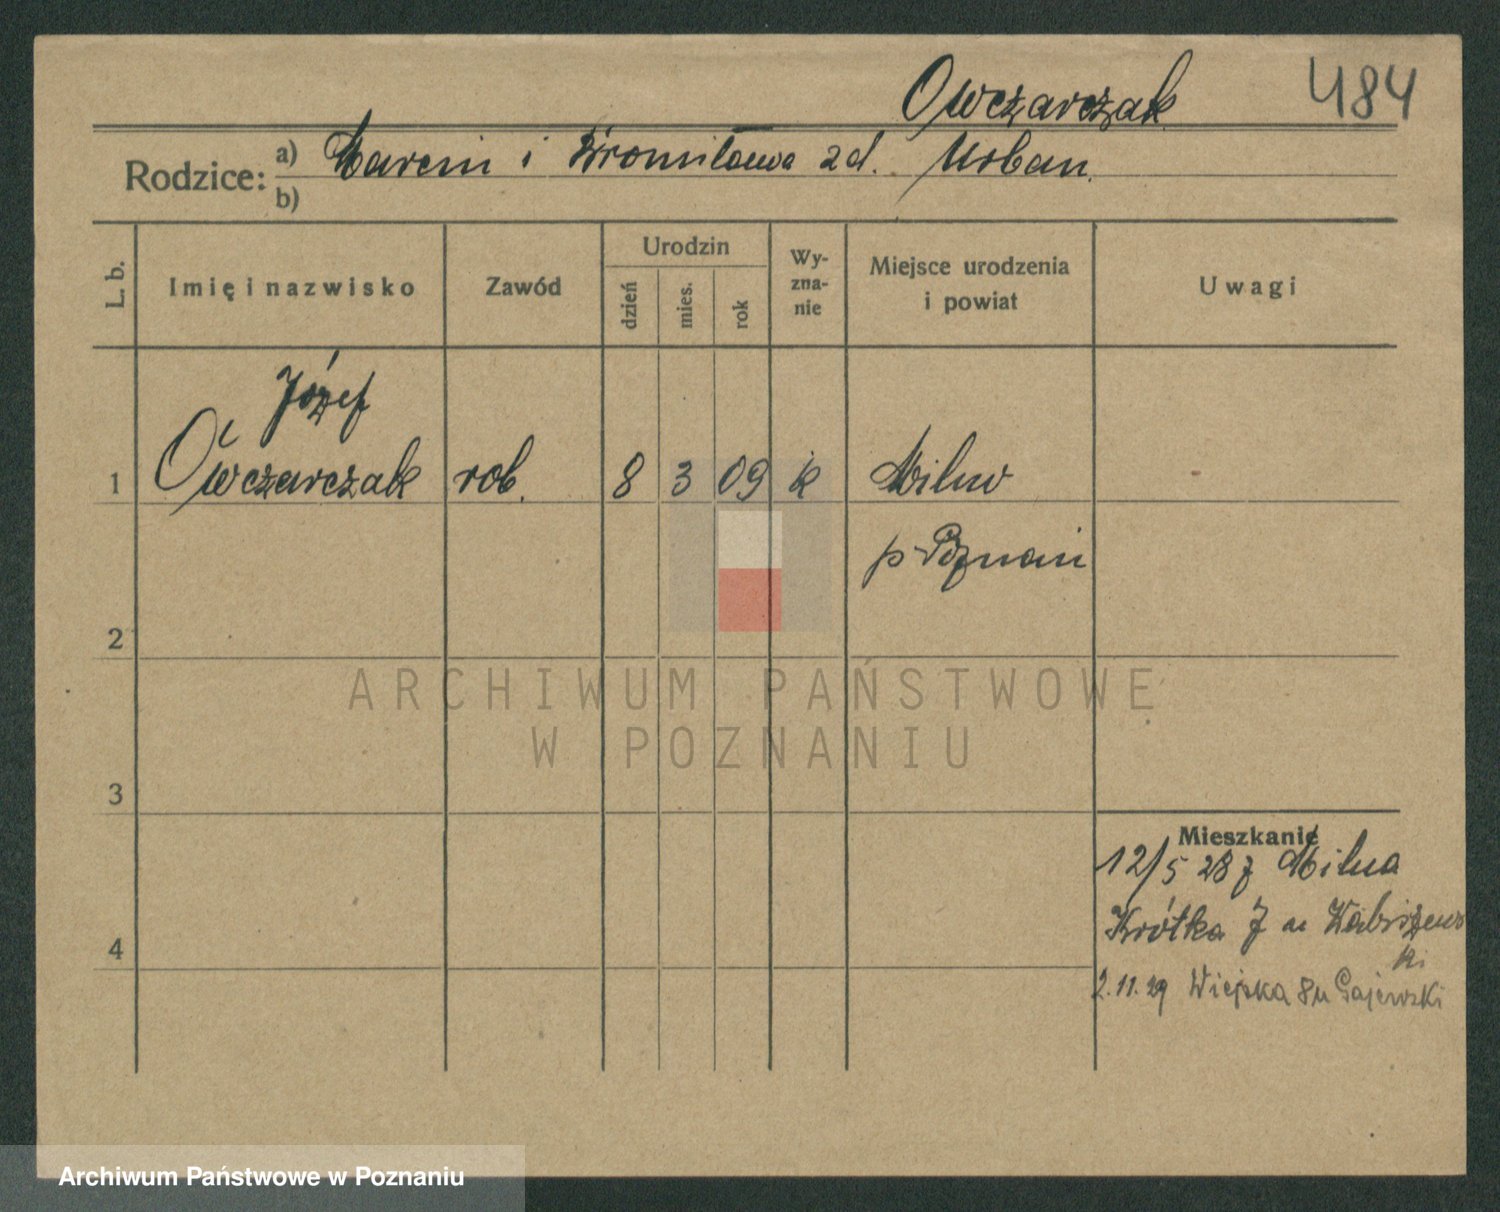 Owczarczak 484
Rodzice: a) Marcin i Bronisława zd. Urban
b)
L. b. Imię i nazwisko Zawód Urodzin dzień mies. rok Wy-zna-nie Miejsce urodzenia i powiat Uwagi
Józef
1 Owczarczak rob. 8 3 09 k Miluw
p. Poznań
2
ARCHIWUM PAŃSTWOWE
W POZNANIU
3
Mieszkanie
12/5 28 z Milna
4 Krótka 7 u Kabiszews
ki
2.11.29 Wiejska 8 u Gajewski
Archiwum Państwowe w Poznaniu